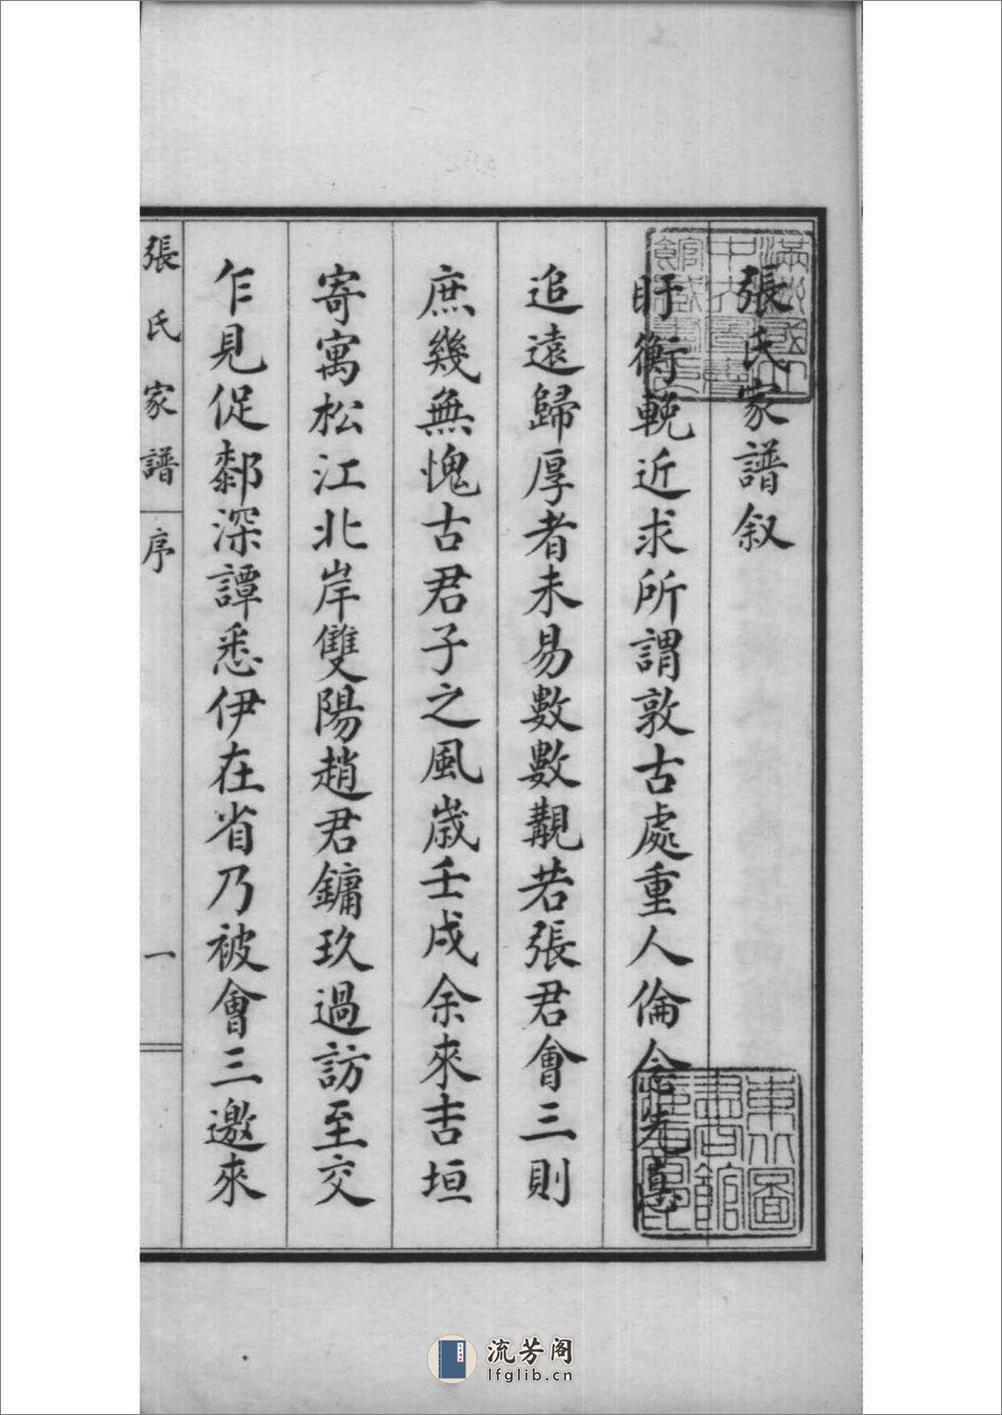 張氏家譜叙
盱衡輓近求所謂敦古處重人倫念先悳
追遠歸厚者未易數數覯若張君會三則
庶幾無愧古君子之風歲壬戌余來吉垣
寄寓松江北岸雙陽趙君鏞玖過訪至交
乍見促厀深譚悉伊在省乃被會三邀來
張氏家譜 序 一
東北圖書館
流芳阁
lfglib.cn